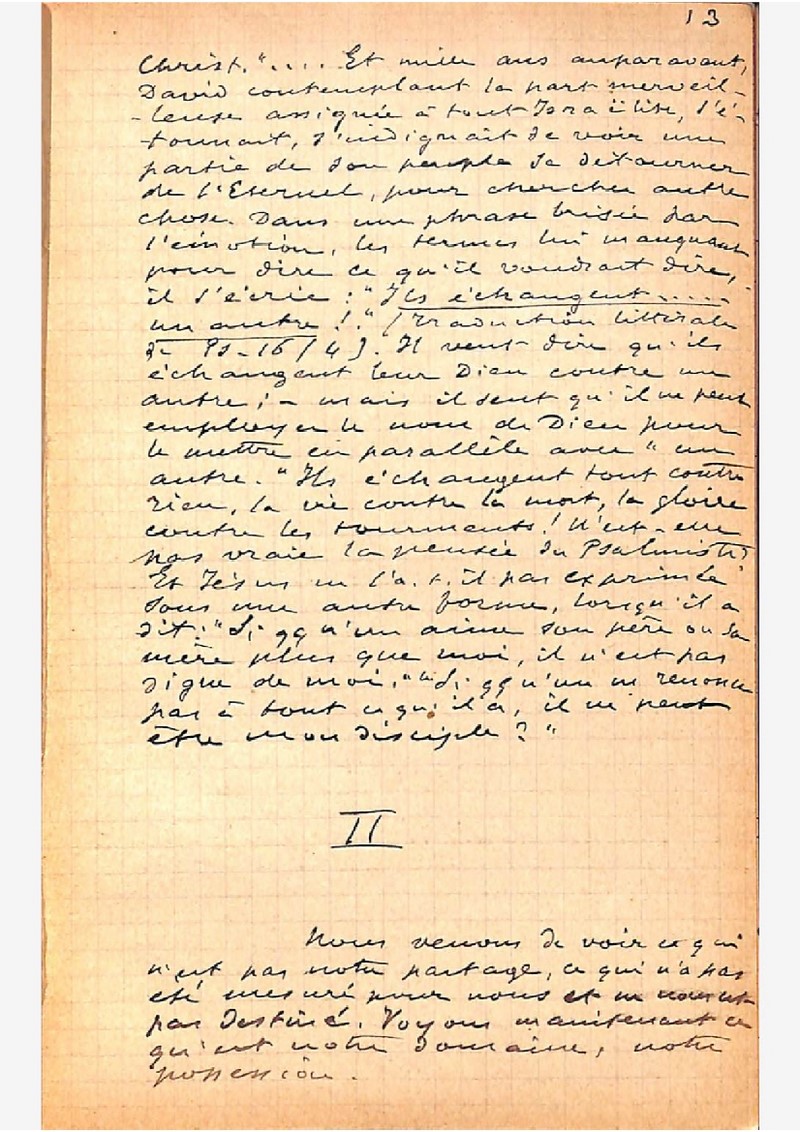 13
Christ.".... Et mille ans auparavant,
David contemplant la part merveil-
-leuse assignée à tout Israëlite, s'é-
tonnait, s'indignait de voir une
partie de son peuple se détourner
de l'Eternel, pour chercher autre
chose. Dans une phrase brisée par
l'émotion, les termes lui manquant
pour dire ce qu'il voudrait dire,
il s'écrie : "Ils échangent.....
un autre !." (Traduction littérale
de Ps. 16/4). Il veut dire qu'ils
échangent leur Dieu contre un
autre ; - mais il sent qu'il ne peut
employer le nom de Dieu pour
le mettre en parallèle avec "un
autre." Ils échangent tout contre
rien, la vie contre la mort, la gloire
contre les tourments ! N'est-elle
pas vraie la pensée du Psalmiste ?
Et Jésus ne l'a.t.il pas exprimée
sous une autre forme, lorsqu'il a
dit : "Si qqu'un aime son père ou sa
mère plus que moi, il n'est pas
digne de moi." "Si qqu'un ne renonce
pas à tout ce qu'il a, il ne peut
être mon disciple ? "
II
Nous venons de voir ce qui
n'est pas notre partage, ce qui n'a pas
été mesuré pour nous et ne nous est
pas destiné. Voyons maintenant ce
qu'est notre domaine, notre
possession.